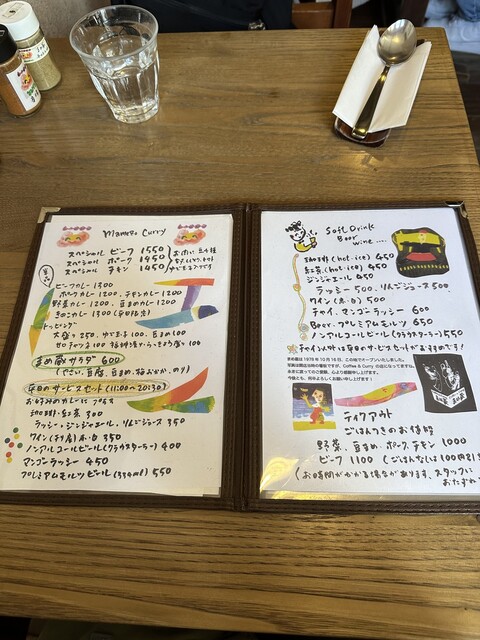 mameza Curry
スペシャル ビーフ 1550
スペシャル ポーク 1450
スペシャル チキン 1450
ビーフカレー 1300
ポークカレー 1200、チキンカレー 1200
野菜カレー 1200、豆まめカレー 1200
きのこカレー 1300
トッピング
大盛り 250、ゆで玉子 100、豆まめ 100
まめ蔵サラダ 600
平日のサービスセット (11:00~20:30)
お好みのカレーに プラス
珈琲・紅茶 300
ラッシー・ジンジャエール、りんごジュース 350
ワイン 赤・白 350
ノンアルコールビール (クラウスターラー) 400
マンゴーラッシー 450
プレミアムモルツビール (334ml) 550
Soft Drink
Beer
wine....
珈琲 (hot・ice) 450
紅茶 (hot・ice) 450
ジンジャエール 450
ラッシー 500、りんごジュース 500
ワイン (赤・白) 500
チャイ、マンゴラッシー 600
Beer プレミアムモルツ 650
ノンアルコールビール (クラウスターラー) 550
チャイ以外は平日のサービスセットがおすすめです!
まめ蔵は 1978年10月16日、この地でオープンいたしました。
テイクアウト
ごはんつきのお値段
野菜、豆まめ、ポーク、チキン 1000
ビーフ 1100 (ごはんなしは 100円引
(お時間がかかる場合があります、スタッフに
おたずね